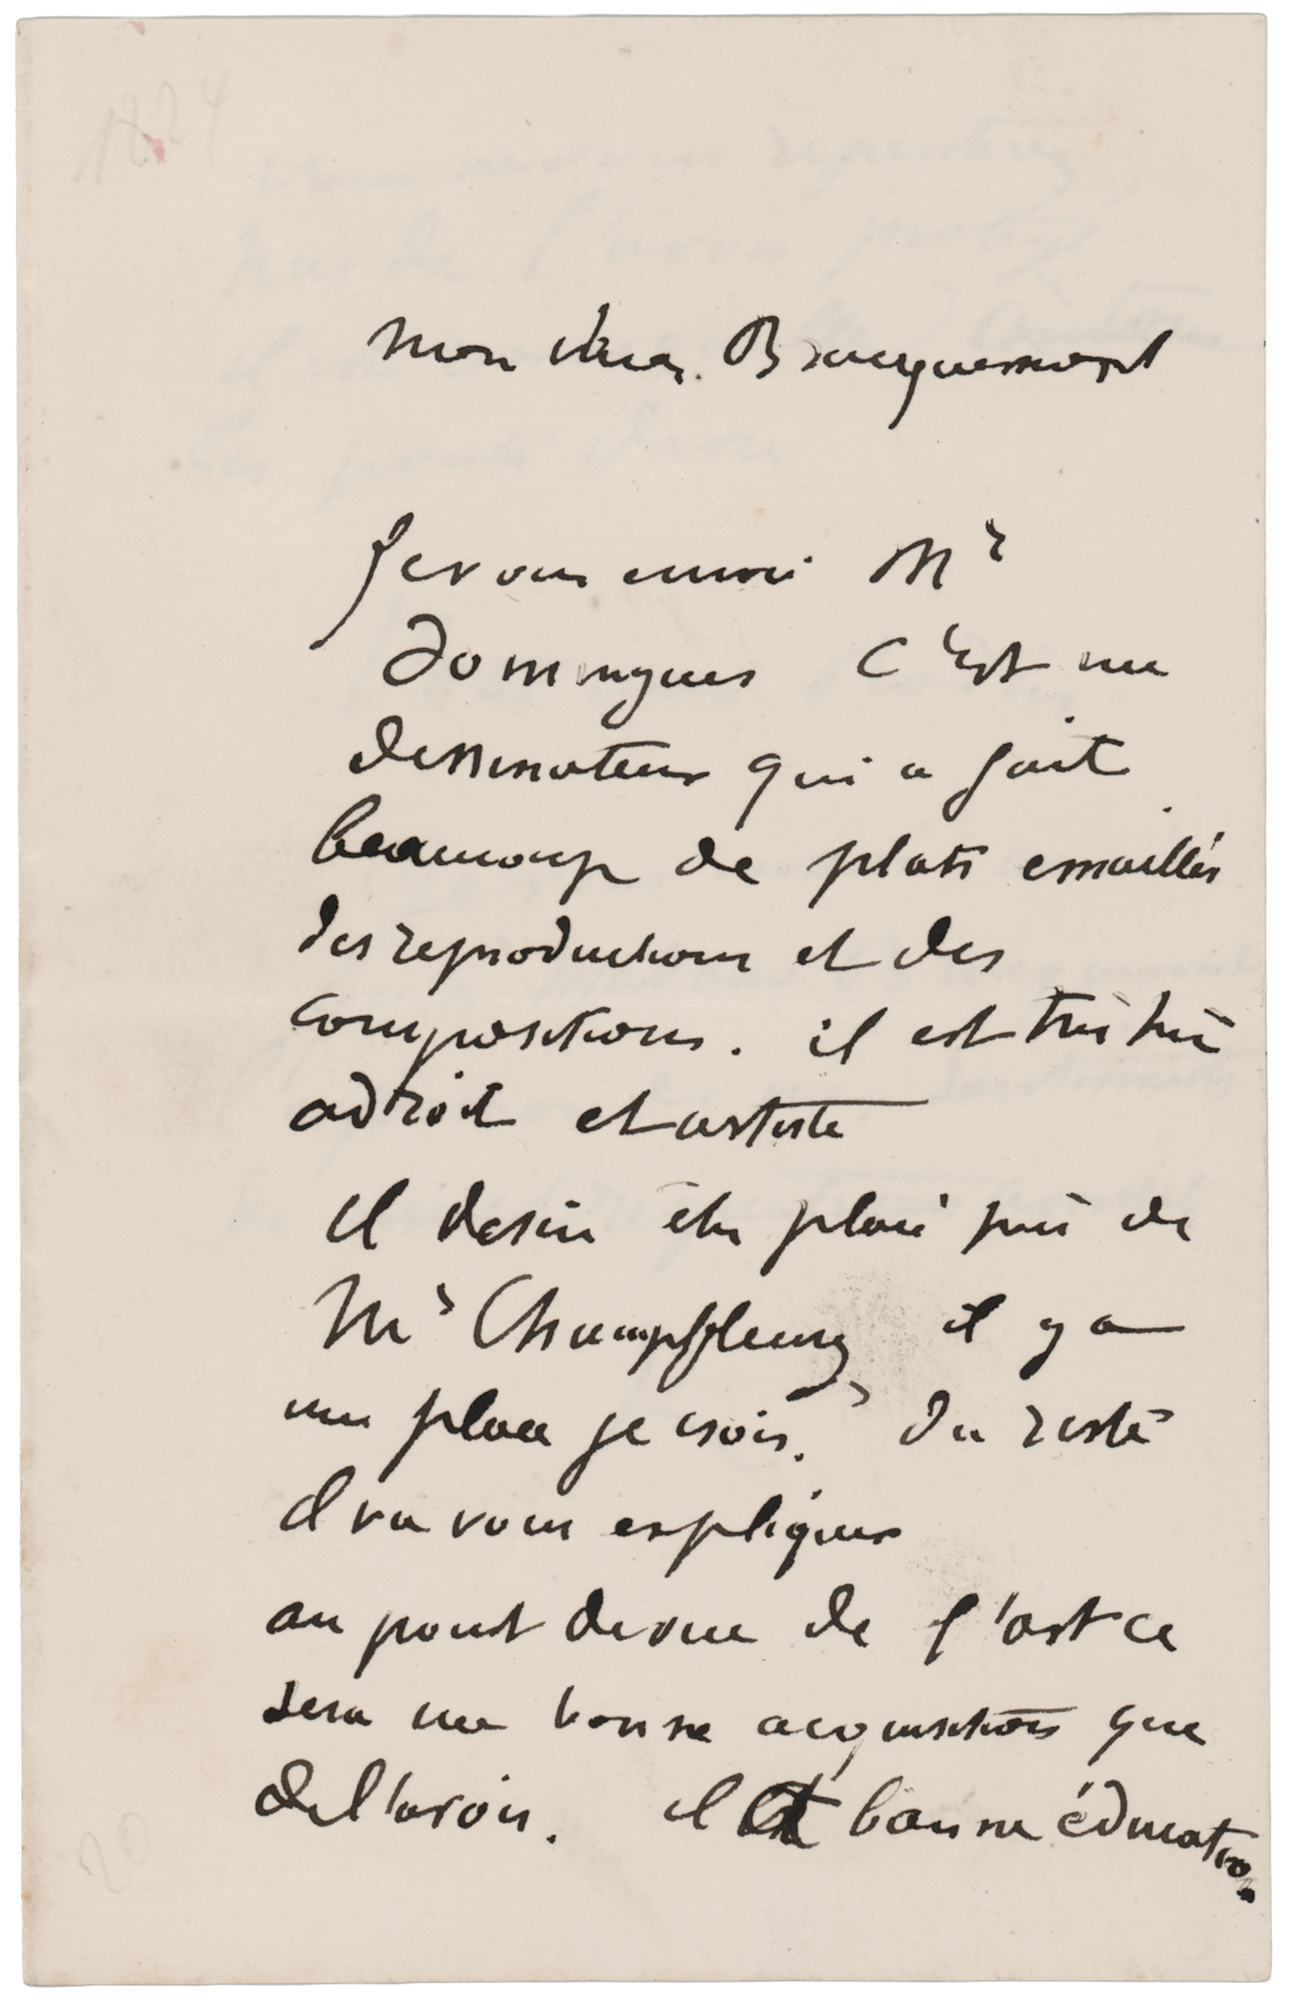 1824
mon cher Bracquemond
Je vous envoi Mr
Domingues C'est un
dessinateur qui a fait
beaucoup de plats emaillés
des reproductions et des
compositions. il est très très
adroit et artiste
il desire etre placé près de
Mr Champfleury il y a
une place je crois. Du reste
il va vous expliquer
au point de vue de l'art ce
sera une bonne acquisition que
de l'avoir. il est bonne éducation
20